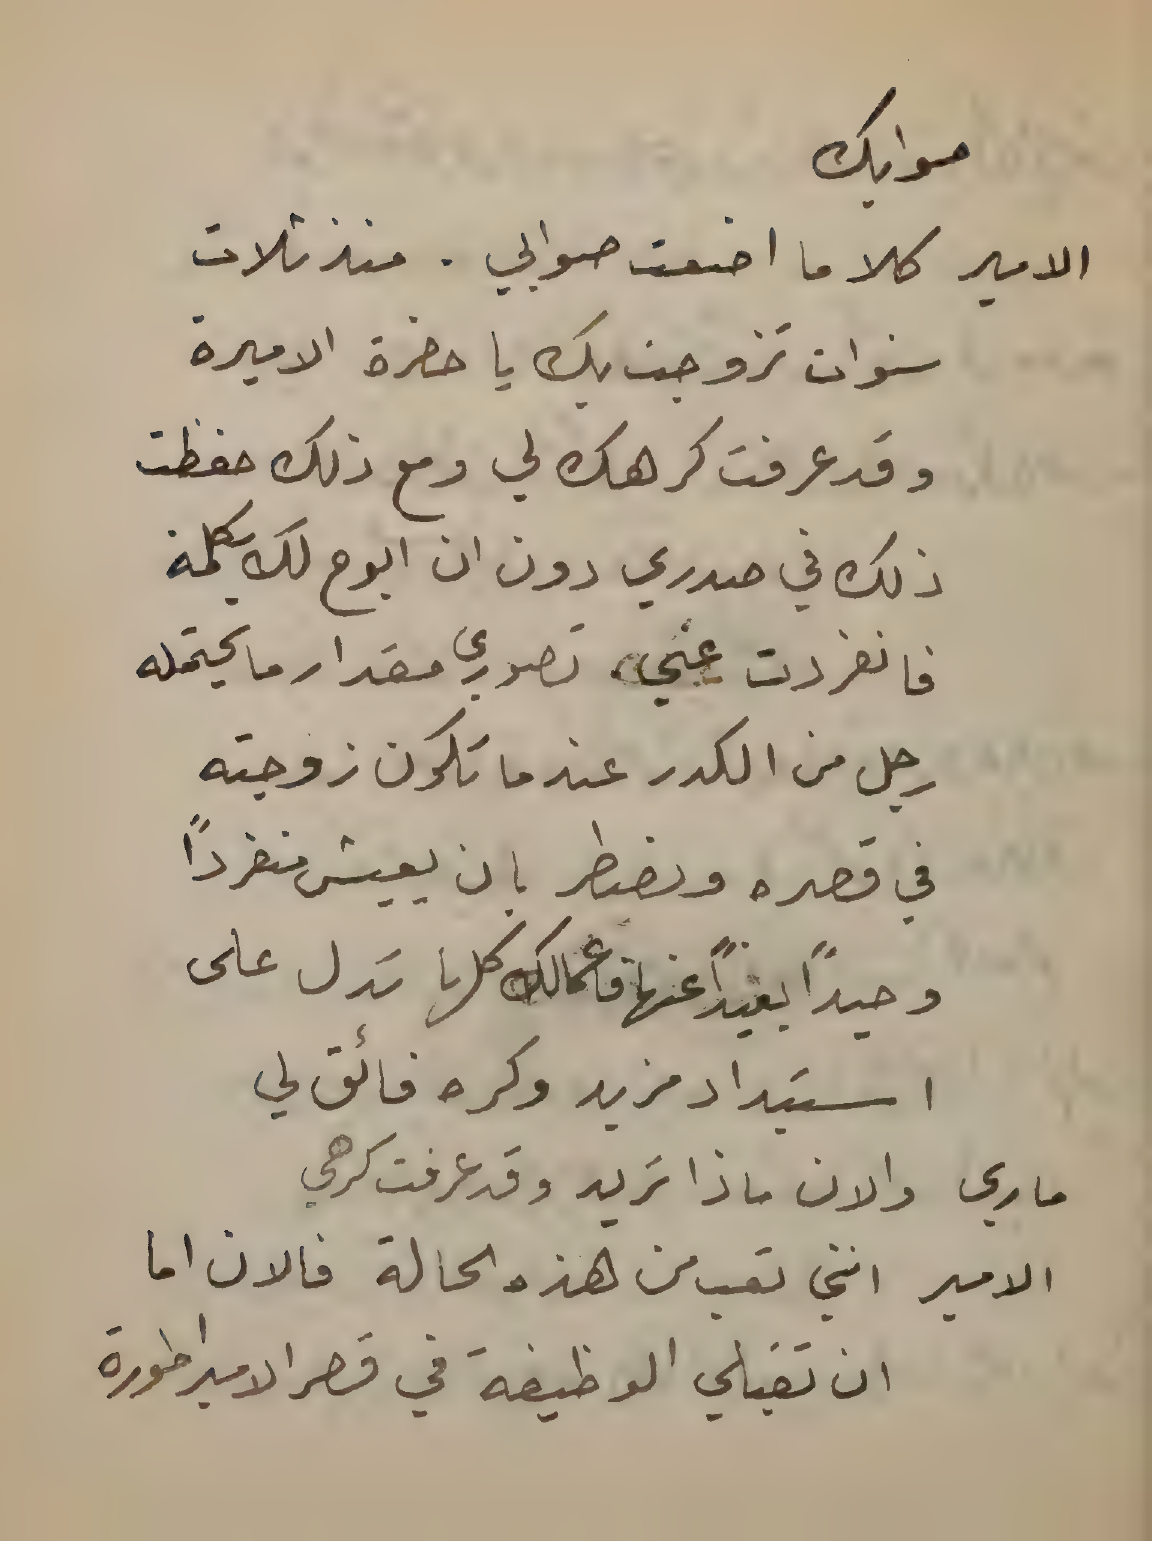 صوابك
الامير كلا ما اضعت صوابي . منذ ثلات
سنوات تزوجت بك يا حضرة الاميرة
وقد عرفت كرهك لي ومع ذلك حفظت
ذلك في صدري دون ان ابوح لك بكلمة
فانفردت عني تصوري مقدار ما يحتمله
رجل من الكدر عندما تكون زوجته
في قصره ويضطر بان يعيش منفرداً
وحيداً بعيداً عنها فاعمالك كلها تدل على
استبداد مزيد وكره فائق لي
ماري والان ماذا تريد وقد عرفت كرهي
الامير انني تعب من هذه الحالة فالان اما
ان تقبلي الوظيفة في قصر الامبراطورة